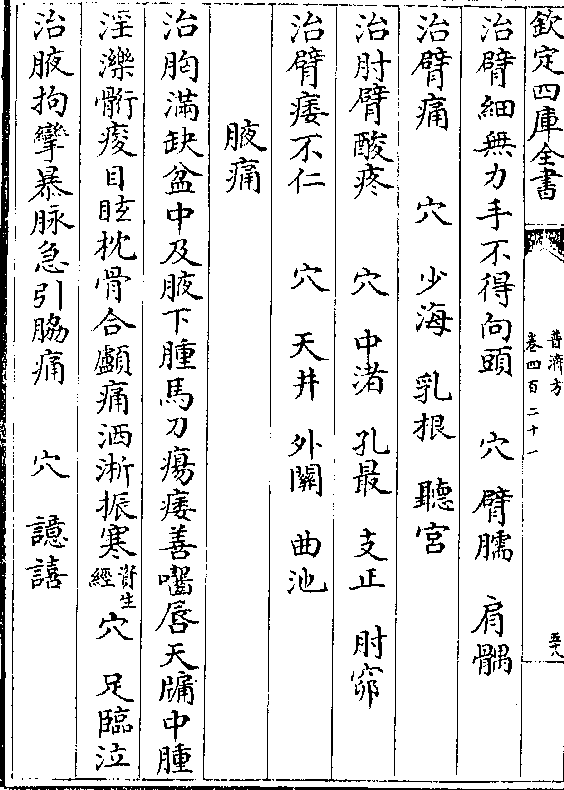 欽定四庫全書
普濟方
卷四百二十一
五十八
治臂細無力手不得向頭 穴 臂臑 肩髃
治臂痛 穴 少海 乳根 聽宮
治肘臂酸疼 穴 中渚 孔最 支正 肘窌
治臂痿不仁 穴 天井 外關 曲池
腋痛
治胸滿缺盆中及腋下腫馬刀瘍瘻善囓唇天牖中腫
淫濼䯒痠目眩枕骨合顱痛洒淅振寒資生經穴 足臨泣
治腋拘攣暴脉急引脇痛 穴 譩譆